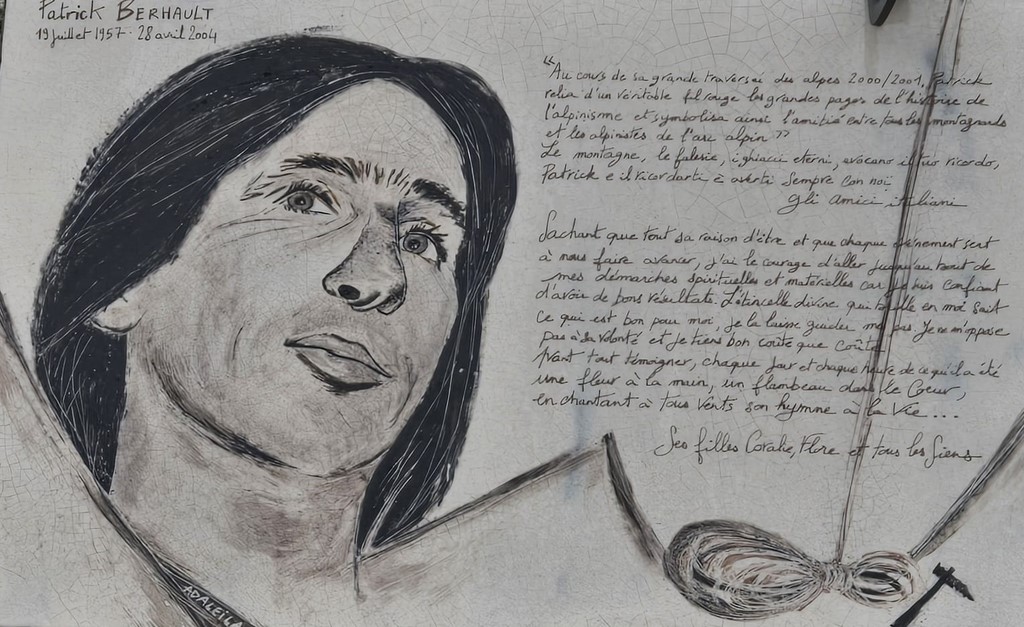 Patrick BERHAULT
19 juillet 1957 - 28 avril 2004
"Au cours de sa grande traversée des alpes 2000/2001, Patrick
relia d'un véritable fil rouge les grandes pages de l'histoire de
l'alpinisme et symbolisa ainsi l'amitié entre tous les montagnards
et les alpinistes de l'arc alpin"
Le montagne, le falesie, i ghiacci eterni, evocano il tuo ricordo,
Patrick e il ricordarti è averti sempre con noi
gli amici italiani
Sachant que tout sa raison d'être et que chaque évènement sert
à nous faire avancer, j'ai le courage d'aller jusqu'au bout de
mes démarches spirituelles et matérielles car je suis confiant
d'avoir de bons résultats. L'étincelle divine qui brille en moi sait
ce qui est bon pour moi, je la laisse guider mes pas. Je ne m'oppose
pas à sa volonté et je tiens bon coûte que coûte
Avant tout témoigner, chaque jour et chaque heure de ce qu'il a été
une fleur à la main, un flambeau dans le Coeur,
en chantant à tous vents son hymne à la Vie...
Ses filles Coralie, Flore et tous les Siens
ADALEILA